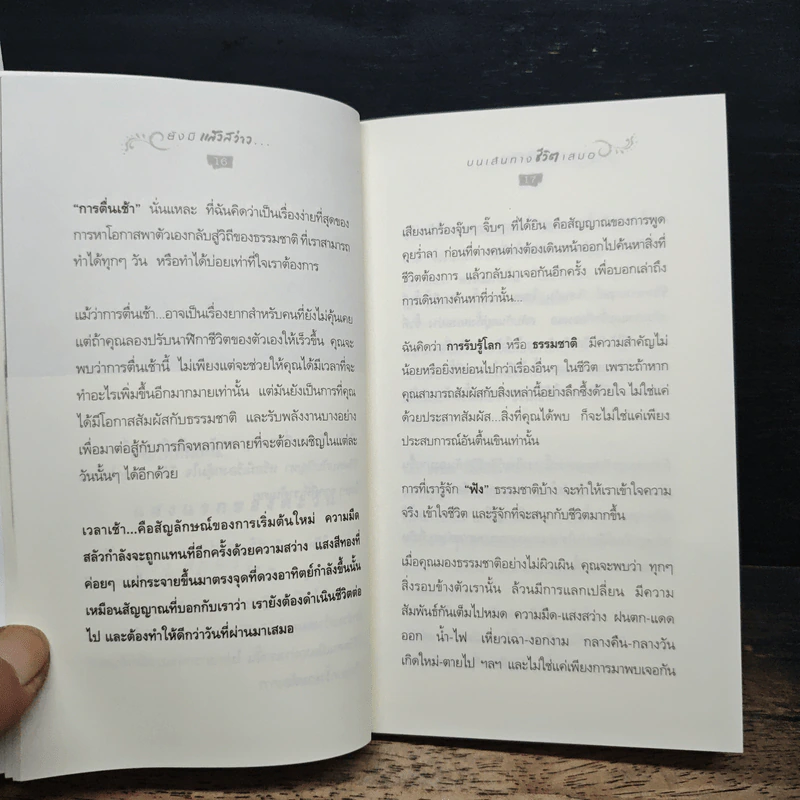 ยังมี แสงสว่าง...
16
"การตื่นเช้า" นั่นแหละ ที่ฉันคิดว่าเป็นเรื่องง่ายที่สุดของ
การหาโอกาสพาตัวเองกลับสู่วิถีของธรรมชาติ ที่เราสามารถ
ทำได้ทุกๆ วัน หรือทำได้บ่อยเท่าที่ใจเราต้องการ
แม้ว่าการตื่นเช้า...อาจเป็นเรื่องยากสำหรับคนที่ยังไม่คุ้นเคย
แต่ถ้าคุณลองปรับนาฬิกาชีวิตของตัวเองให้เร็วขึ้น คุณจะ
พบว่าการตื่นเช้านี้ ไม่เพียงแต่จะช่วยให้คุณได้มีเวลาที่จะ
ทำอะไรเพิ่มขึ้นอีกมากมายเท่านั้น แต่มันยังเป็นการที่คุณ
ได้มีโอกาสสัมผัสกับธรรมชาติ และรับพลังงานบางอย่าง
เพื่อมาต่อสู้กับภารกิจหลากหลายที่จะต้องเผชิญในแต่ละ
วันนั้นๆ ได้อีกด้วย
เวลาเช้า...คือสัญลักษณ์ของการเริ่มต้นใหม่ ความมืด
สลัวกำลังจะถูกแทนที่อีกครั้งด้วยความสว่าง แสงสีทองที่
ค่อยๆ แผ่กระจายขึ้นมาตรงจุดที่ดวงอาทิตย์กำลังขึ้นนั้น
เหมือนสัญญาณที่บอกกับเราว่า เรายังต้องดำเนินชีวิตต่อ
ไป และต้องทำให้ดีกว่าวันที่ผ่านมาเสมอ
บนเส้นทางชีวิตเสมอ
17
เสียงนกร้องจุ๊บๆ จิ๊บๆ ที่ได้ยิน คือสัญญาณของการพูด
คุยร่ำลา ก่อนที่ต่างคนต่างต้องเดินหน้าออกไปค้นหาสิ่งที่
ชีวิตต้องการ แล้วกลับมาเจอกันอีกครั้ง เพื่อบอกเล่าถึง
การเดินทางค้นหาที่ว่านั้น...
ฉันคิดว่า การรับรู้โลก หรือ ธรรมชาติ มีความสำคัญไม่
น้อยหรือยิ่งหย่อนไปกว่าเรื่องอื่นๆ ในชีวิต เพราะถ้าหาก
คุณสามารถสัมผัสกับสิ่งเหล่านี้อย่างลึกซึ้งด้วยใจ ไม่ใช่แค่
ด้วยประสาทสัมผัส...สิ่งที่คุณได้พบ ก็จะไม่ใช่แค่เพียง
ประสบการณ์อันตื้นเขินเท่านั้น
การที่เรารู้จัก "ฟัง" ธรรมชาติบ้าง จะทำให้เราเข้าใจความ
จริง เข้าใจชีวิต และรู้จักที่จะสนุกกับชีวิตมากขึ้น
เมื่อคุณมองธรรมชาติอย่างไม่ผิวเผิน คุณจะพบว่า ทุกๆ
สิ่งรอบข้างตัวเรานั้น ล้วนมีการแลกเปลี่ยน มีความ
สัมพันธ์กันเต็มไปหมด ความมืด-แสงสว่าง ฝนตก-แดด
ออก น้ำ-ไฟ เหี่ยวเฉา-งอกงาม กลางคืน-กลางวัน
เกิดใหม่-ตายไป ฯลฯ และไม่ใช่แค่เพียงการมาพบเจอกัน